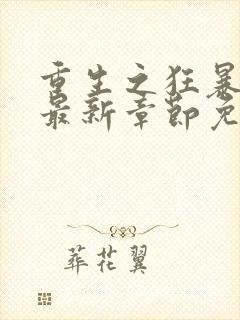 重生之狂暴
最新章节免
葬花翼